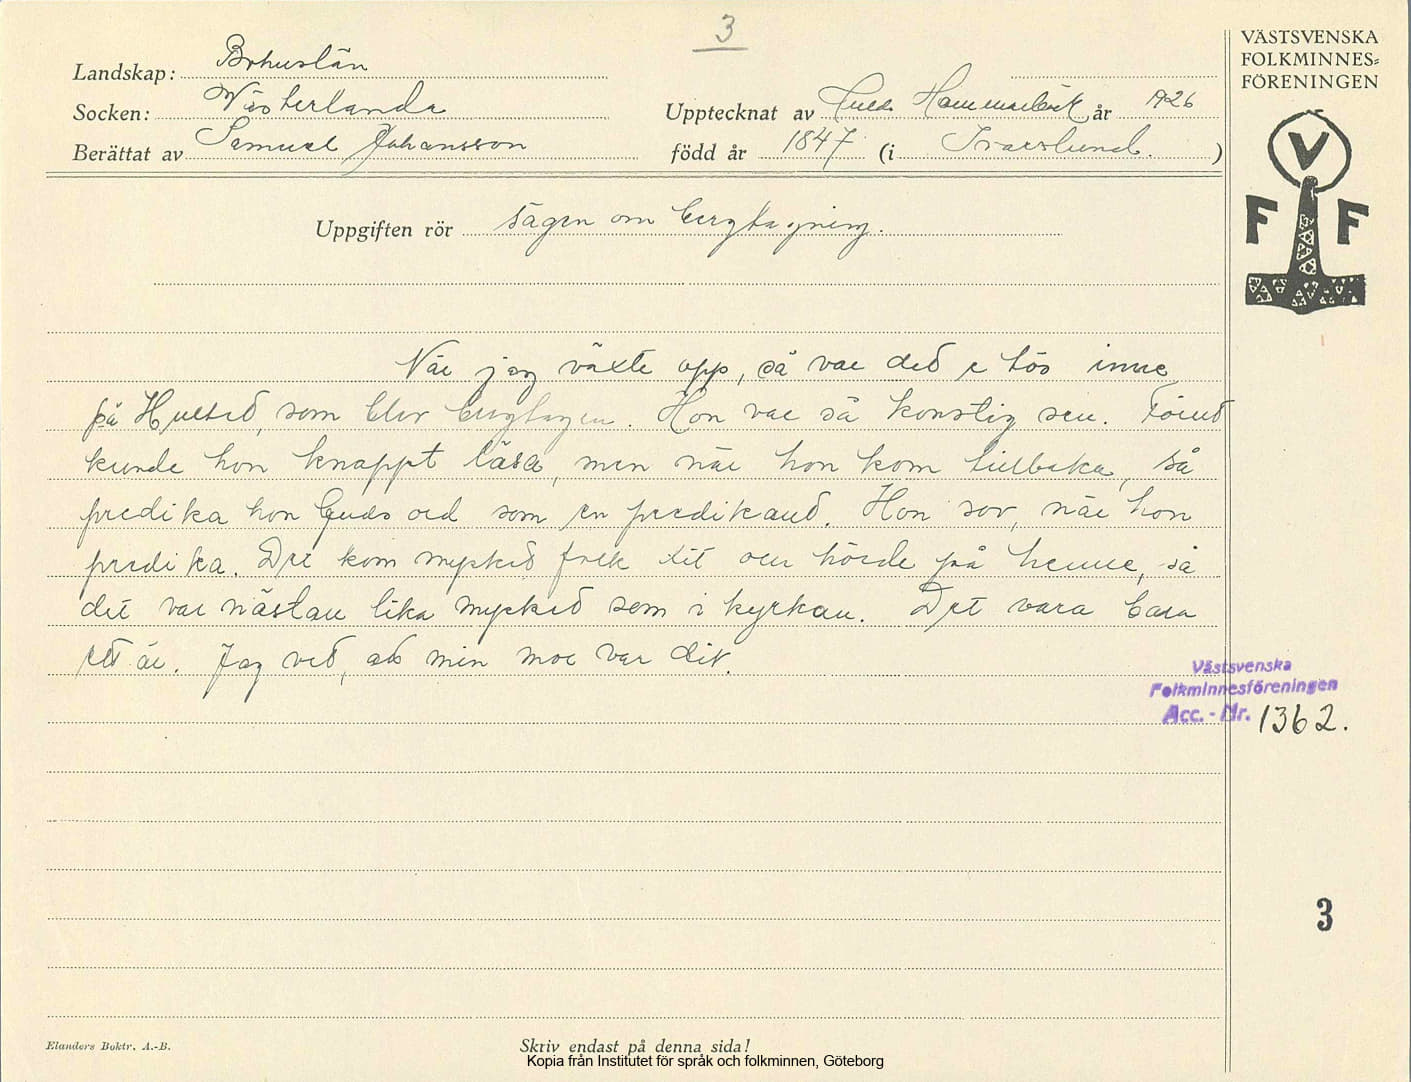 3
VÄSTSVENSKA
FOLKMINNES=
FÖRENINGEN
V
F F
Landskap: Bohuslän
Socken: Västerlanda
Upptecknat av Hulda Hammarbäck år 1926
Berättat av Samuel Johansson
född år 1847 (i Ivarslund.)
Uppgiften rör sägen om bergtagning.
När jag växte opp, så var ded e tös inne
på Hulted, som blev bergtagen. Hon var så konstig sen. Förud
kunde hon knappt läsa, men när hon kom tillbaka, så
predika hon Guds ord som en predikand. Hon sov, när hon
predika. Det kom mycked folk dit och hörde på henne, så
det var nästan lika mycked som i kyrkan. Det vara bara
ett år. Jag ved, ad min mor var dit.
Västsvenska
Folkminnesföreningen
Acc. - Nr. 1362.
3
Elanders Boktr. A.-B.
Skriv endast på denna sida!
Kopia från Institutet för språk och folkminnen, Göteborg